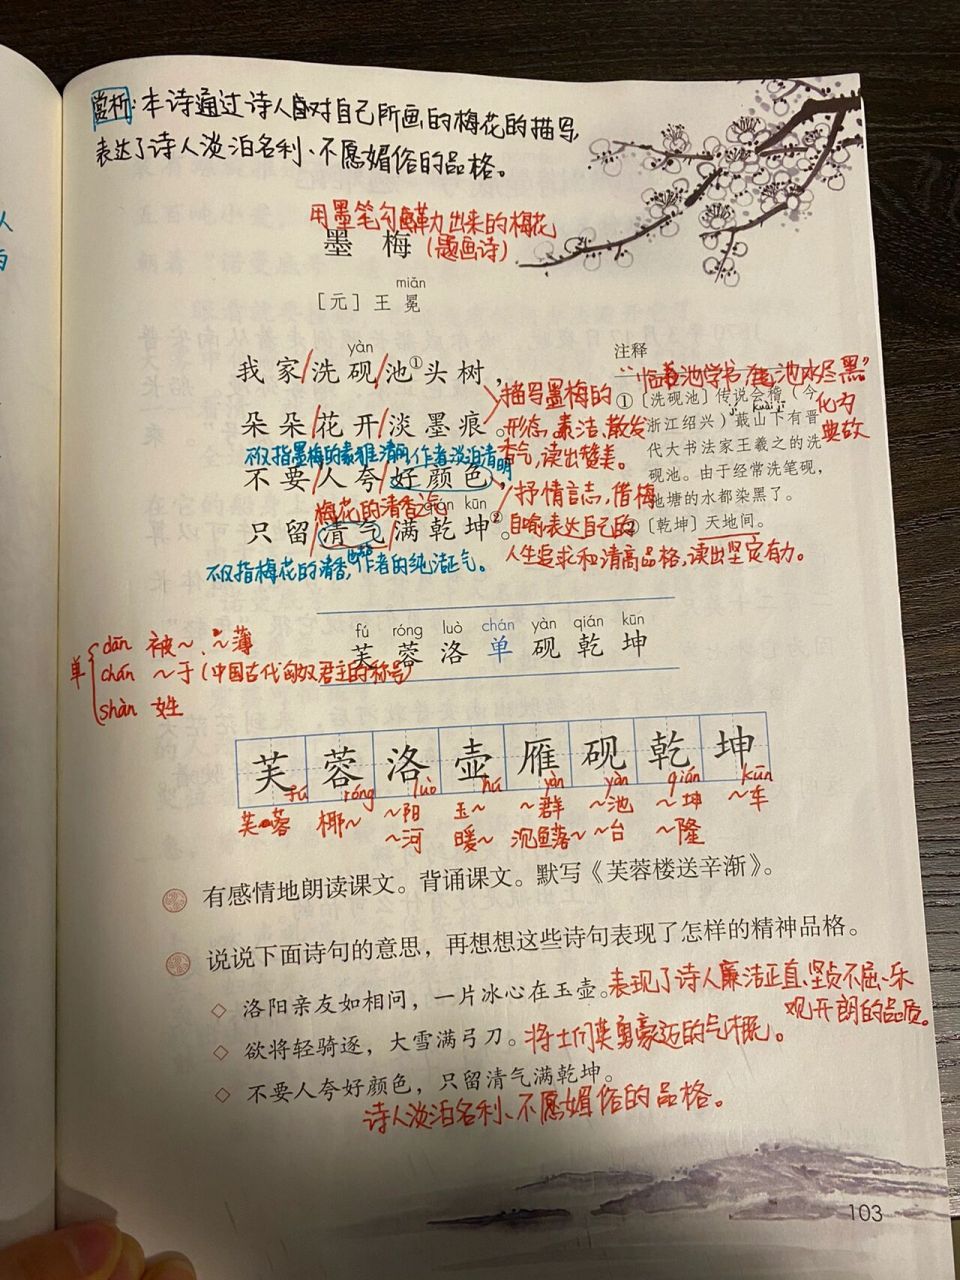 赏析:本诗通过诗人对自己所画的梅花的描写,
表达了诗人淡泊名利、不愿媚俗的品格。
用墨笔勾画勒出来的梅花
墨 梅
(题画诗)
miǎn
[元]王 冕
yàn
我家/洗砚/池①头树,
朵朵/花开/淡墨痕。
描写墨梅的
形态,素洁,散发
香气,读出赞美。
不仅指墨梅的素雅清明,作者淡泊清明
不要/人夸/好颜色,
梅花的清香之气
qián kūn
只留/清气/满乾坤②。
抒情言志,借梅
自喻表达自己的
人生追求和清高品格,读出坚定有力。
不仅指梅花的清香,也指作者的纯洁正气。
注释
"临池学书,池水尽黑"
化为
典故
①[洗砚池]传说会稽(今
jí
kuài jī
浙江绍兴)蕺山下有晋
代大书法家王羲之的洗
砚池。由于经常洗笔砚,
池塘的水都染黑了。
②[乾坤]天地间。
fú róng luò chán yàn qián kūn
芙 蓉 洛 单 砚 乾 坤
单
dān 被~、~薄
chán ~于(中国古代匈奴君主的称号)
shàn 姓
芙 蓉 洛 壶 雁 砚 乾 坤
fú róng luò hú yàn yàn qián kūn
芙蓉 椰~ ~阳 玉~ ~群 ~池 ~坤 ~车
~河 暖~ 沉鱼落~ ~台 ~隆
有感情地朗读课文。背诵课文。默写《芙蓉楼送辛渐》。
说说下面诗句的意思,再想想这些诗句表现了怎样的精神品格。
◇ 洛阳亲友如相问,一片冰心在玉壶。
表现了诗人廉洁正直、坚贞不屈、乐
观开朗的品质。
◇ 欲将轻骑逐,大雪满弓刀。
将士们英勇豪迈的气概。
◇ 不要人夸好颜色,只留清气满乾坤。
诗人淡泊名利、不愿媚俗的品格。
103